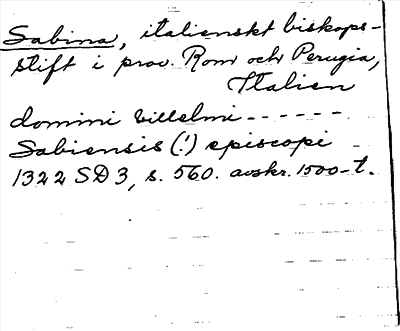 Sabina, italienskt biskops-
stift i prov. Rom och Perugia,
Italien
domini Villelmi ------
Sabiensis (!) episcopi
1322 SD 3, s. 560. avskr. 1500-t.